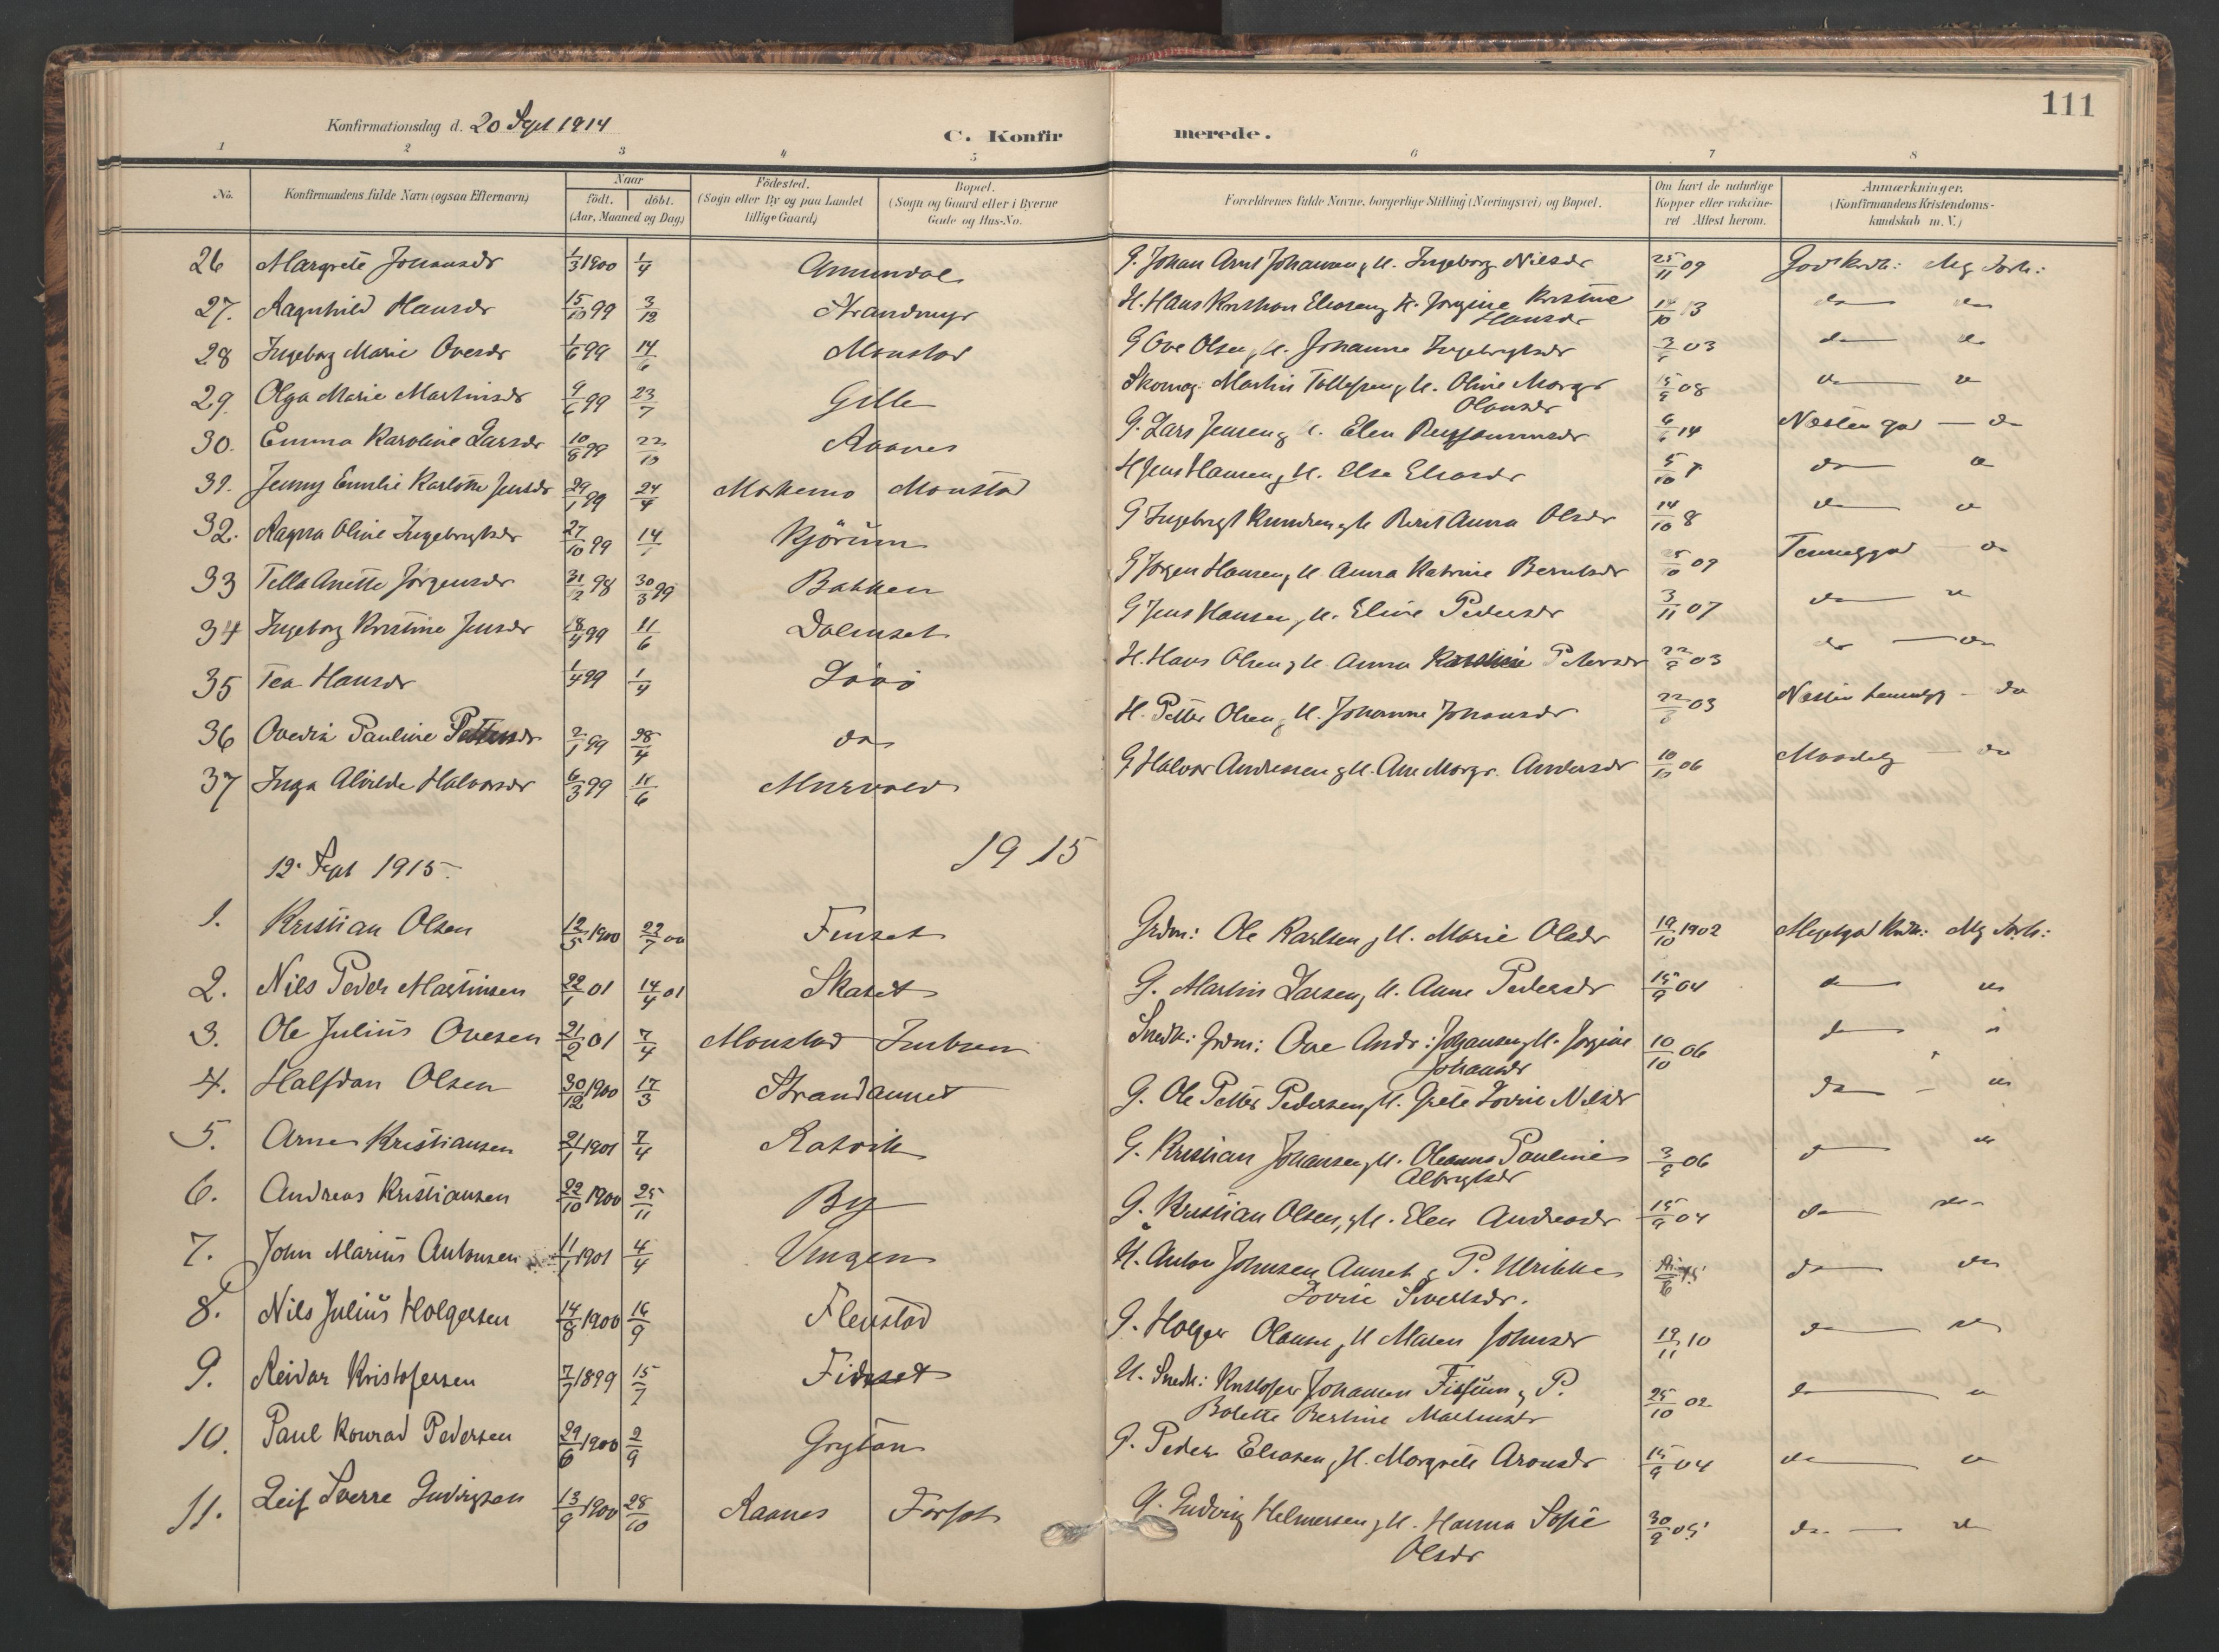 111
Konfirmationsdag d. 20 Sept 1914
C. Konfirmerede.
1 2 3 4 5 6 7 8
No. Konfirmandens fulde Navn (ogsaa Efternavn) Naar födt. döbt. (Aar, Maaned og Dag) Födested. (Sogn eller By og paa Landet tillige Gaard) Bopæl. (Sogn og Gaard eller i Byerne Gade og Hus-No. Forældrenes fulde Navne, borgerlige Stilling (Næringsvei) og Bopæl. Om havt de naturlige Kopper eller vakcineret Attest herom. Anmærkninger. (Konfirmandens Kristendomskundskab m. V.)
26 Margrete Johansdr 1/3 1900 1/4 Amundal G. Johan Arnt Johansen, H. Ingeborg Nilsdr 25/11 09 God Kndk: Mg Forh:
27. Ragnhild Hansdr 15/10 99 3/12 Strandmyr H. Hans Kristian Eliasen, H. Jørgine Kristine Hansdr 14/10 13 do do
28 Ingeborg Marie Ovesdr 1/6 99 14/6 Monstad G Ove Olsen, H. Johanne Ingebrigtsdr 03 do do
29. Olga Marie Martinsdr 9/6 99 23/7 Gille Skomag: Martin Tollefsen, H. Oline Margr Olausdr 15/9 08 do do
30. Emma Karoline Larsdr 10/8 99 22/10 Aaanes G. Lars Jensen, H. Elen 14 Næsten god — do
31. Jenny Emilie Karlotte Jensdr 29/1 99 24/4 Mohemo Monstad H Jens Hansen, H. Else Eliasdr 5/10 do do
32. Ragna Oline Ingebrigtsdr 27/10 99 14/1 Kjörum G Ingebrigt Knudsen, H Berit Anna Olsdr 14/10 8 do do
33 Tella Anette Jørgensdr 31/2 98 30/3 99 Bakken G Jørgen Hansen, H. Anna Katrine Berntsdr 10 09 Temmeliggod do
34 Ingeborg Kristine Jensdr 18/4 99 11/6 Dalemset G Jens Hansen, H. Eline Pedersdr 3/11 07 do do
35 Tea Hansdr 1/4 99 1/4 H. Hans Olsen, H. Anna Karoline Petersdr 22/9 03 do do
36 Ovedia Pauline Pettersdr 2/1 99 28/4 do H. Petter Olsen, H. Johanne Johansdr 22 03 Næsten temmelig — do
37 Inga Alvilde Halvorsdr 6/3 99 11/6 Murvold G Halvor Andresen, H. Ane Margr. Andersdr 10/10 06 Maadelig — do
12. Sept 1915. 1915
1. Kristian Olsen 12/5 1900 22/7 00 Finset Grdm: Ole Karlsen, H. Marie Olsdr 19/10 1902 Megetgod Kndk: Mg Forh:
2. Nils Peder Martinsen 22/1 01 14/4 01 Skaret G. Martin Larsen, H. Anne Pedersdr 15/9 04 do do
3. Ole Julius Ovesen 21/2 01 7/4 Monstad Snedk: Grdm: Ove Andr: Johansen, H. Jørgine Johansdr 10/10 06 do do
4. Halfdan Olsen 30/12 1900 17/3 Strandannet G. Ole Petter Pedersen, H. Grete Lovise Nilsdr do do
5. Arne Kristiansen 21/1 1901 7/4 Ratvik G. Kristian Johansen, H. Oleanna Pauline Albrigtsdr 3/9 06 do do
6. Andreas Kristiansen 22/10 1900 25/11 By G. Kristian Olsen, H. Elen Andreasdr 15/9 04 do do
7. John Marius Antonsen 11/1 1901 4/4 Vingen U. Anton Johnsen Annet, P. Ulrikke Lovise Sivertsdr. do do
8. Nils Julius Holgersen 14/8 1900 16/9 Flenstad G. Holger Olausen, H Maren Johnsdr 19/11 10 do do
9. Reidar Kristofersen 7/7 1899 15/7 Fidset U. Snedk: Kristofer Johansen Fissum, P. Bolette Bertine Martinsdr 25/10 02 do do
10. Paul Konrad Pedersen 29/6 1900 2/9 Grytan G. Peder Eliasen, H. Margrete Aronsdr 15/9 04 do do
11. Leif Sverre Ludvigsen 13/9 1900 28/10 Raanes Ludvig Helmersen, H. Hanna Sofie Olsdr 30/9 05 do. do